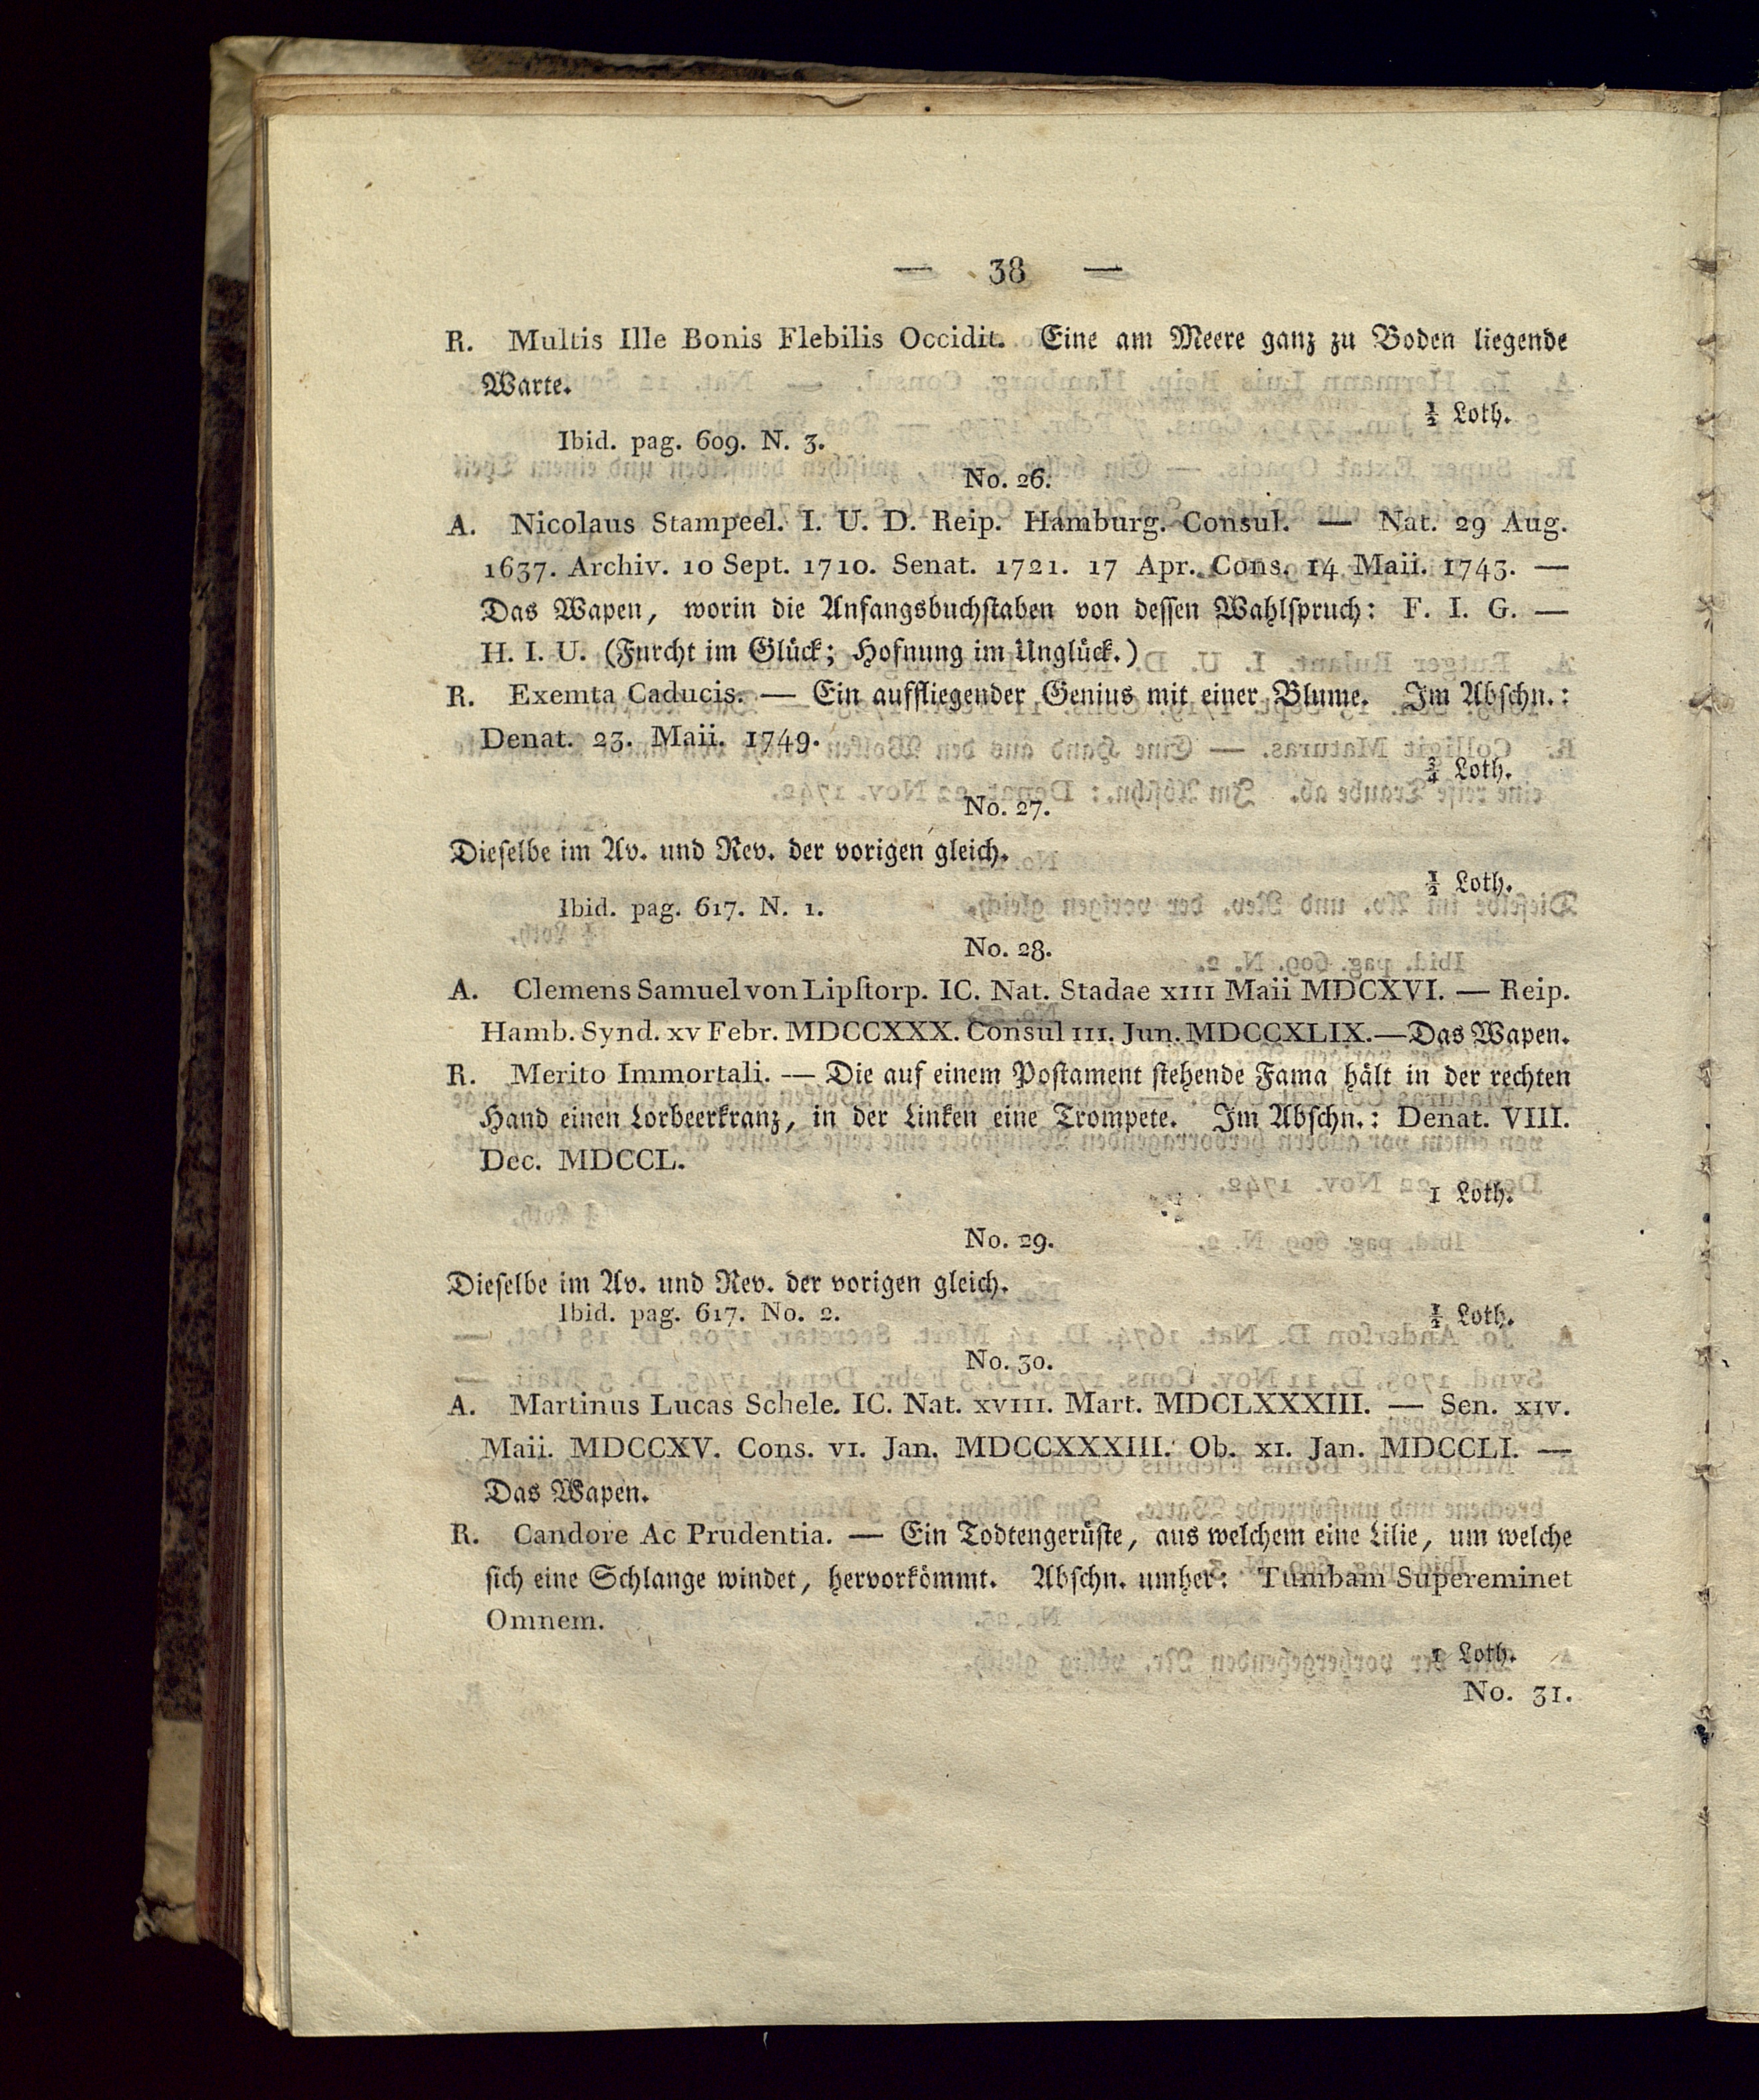 — 38 —
R. Multis Ille Bonis Flebilis Occidit. Eine am Meere ganz zu Boden liegende
Warte.
½ Loth.
Ibid. pag. 609. N. 3.
No. 26.
A. Nicolaus Stampeel. I. U. D. Reip. Hamburg. Consul. — Nat. 29 Aug.
1637. Archiv. 10 Sept. 1710. Senat. 1721. 17 Apr. Cons. 14 Maii. 1743. —
Das Wapen, worin die Anfangsbuchſtaben von deſſen Wahlſpruch: F. I. G. —
H. I. U. (Furcht im Glück; Hofnung im Unglück.)
R. Exemta Caducis. — Ein auffliegender Genius mit einer Blume. Im Abſchn.:
Denat. 23. Maii. 1749.
¾ Loth.
No. 27.
Dieſelbe im Av. und Rev. der vorigen gleich.
½ Loth.
Ibid. pag. 617. N. 1.
No. 28.
A. Clemens Samuel von Lipſtorp. IC. Nat. Stadae XIII Maii MDCXVI. — Reip.
Hamb. Synd. XV Febr. MDCCXXX. Consul III. Jun. MDCCXLIX.—Das Wapen.
R. Merito Immortali. — Die auf einem Poſtament ſtehende Fama hält in der rechten
Hand einen Lorbeerkranz, in der Linken eine Trompete. Im Abſchn.: Denat. VIII.
Dec. MDCCL.
1 Loth.
No. 29.
Dieſelbe im Av. und Rev. der vorigen gleich.
Ibid. pag. 617. No. 2.
½ Loth.
No. 30.
A. Martinus Lucas Schele. IC. Nat. XVIII. Mart. MDCLXXXIII. — Sen. XIV.
Maii. MDCCXV. Cons. VI. Jan. MDCCXXXIII. Ob. XI. Jan. MDCCLI. —
Das Wapen.
R. Candore Ac Prudentia. — Ein Todtengerüſte, aus welchem eine Lilie, um welche
ſich eine Schlange windet, hervorkömmt. Abſchn. umher: Tumbam Supereminet
Omnem.
1 Loth.
No. 31.